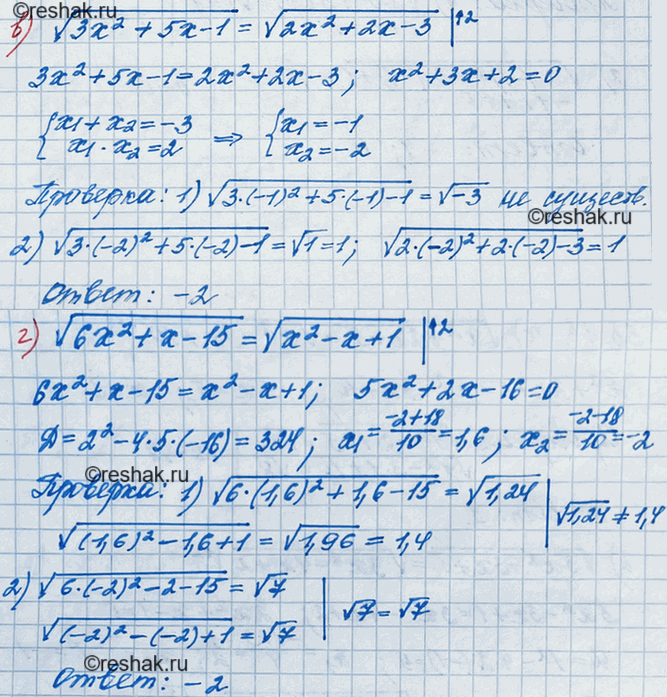 ©reshak.ru
в) √(3x² + 5x - 1) = √(2x² + 2x - 3) |↑2
3x² + 5x - 1 = 2x² + 2x - 3; x² + 3x + 2 = 0
{x₁ + x₂ = -3 ⇒ {x₁ = -1
x₁ · x₂ = 2 x₂ = -2
Проверка: 1) √(3·(-1)² + 5·(-1) - 1) = √-3 не существ.
©reshak.ru
2) √(3·(-2)² + 5·(-2) - 1) = √1 = 1; √(2·(-2)² + 2·(-2) - 3) = 1
Ответ: -2
г) √(6x² + x - 15) = √(x² - x + 1) |↑2
6x² + x - 15 = x² - x + 1; 5x² + 2x - 16 = 0
Д = 2² - 4·5·(-16) = 324; x₁ = (-2+18)/10 = 1,6; x₂ = (-2-18)/10 = -2
©reshak.ru
Проверка: 1) √(6·(1,6)² + 1,6 - 15) = √1,24 | √1,24 ≠ 1,4
√((1,6)² - 1,6 + 1) = √1,96 = 1,4
2) √(6·(-2)² - 2 - 15) = √7 | √7 = √7
√((-2)² - (-2) + 1) = √7
©reshak.ru
Ответ: -2